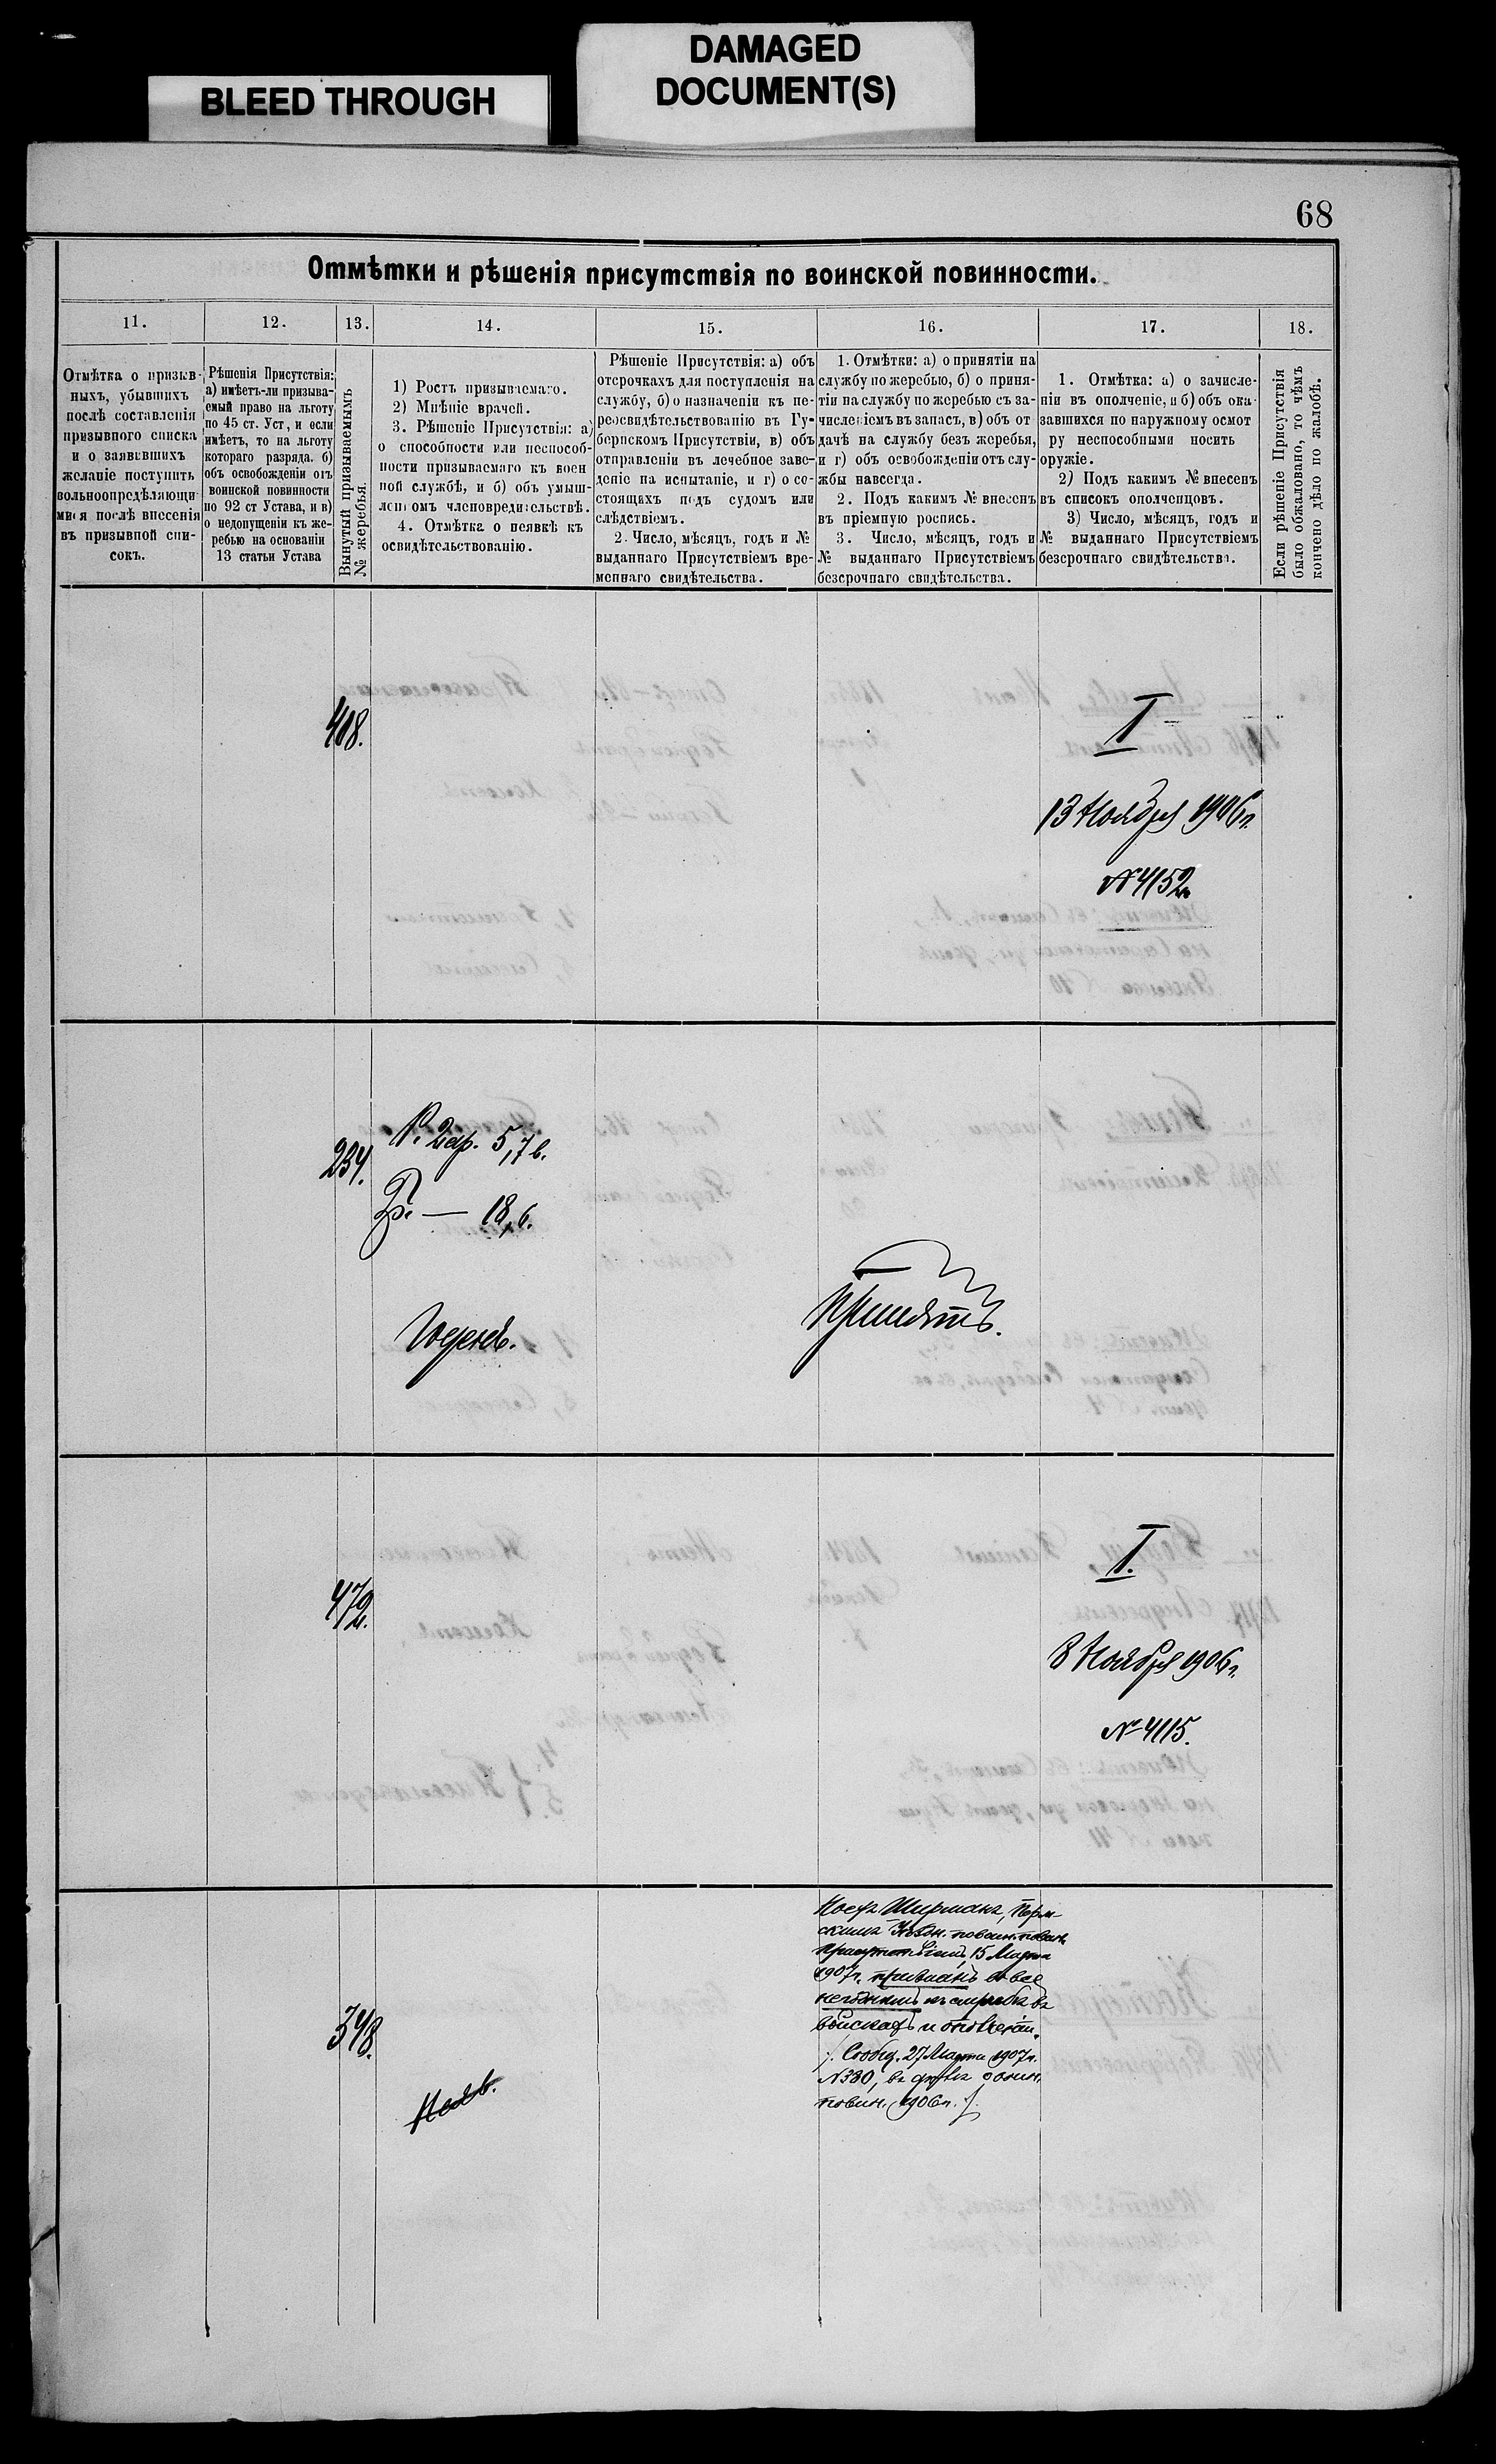 BLEED THROUGH
DAMAGED
DOCUMENT(S)
68
Отмѣтки и рѣшенія присутствія по воинской повинности.
11.
12.
13.
14.
15.
16.
17.
18.
Отмѣтка о призыв-
ныхъ, убывшихъ
послѣ составленія
призывного списка
и о заявившихъ
желаніе поступить
вольноопредѣляющи-
мися послѣ внесенія
въ призывной спи-
сокъ.
Рѣшенія Присутствія:
а) имѣетъ-ли призыва-
емый право на льготу
по 45 ст. Уст, и если
имѣетъ, то на льготу
котораго разряда. б)
объ освобожденіи отъ
воинской повинности
по 92 ст Устава, и в)
о недопущеніи къ же-
ребью на основаніи
13 статьи Устава
Вынутый призываемымъ
№ жеребья.
1) Ростъ призываемаго.
2) Мнѣніе врачей.
3. Рѣшеніе Присутствія: а)
о способности или неспособ-
ности призываемаго къ воен
ной службѣ, и б) объ умыш-
ленномъ членовредительствѣ.
4. Отмѣтка о неявкѣ къ
освидѣтельствованію.
Рѣшеніе Присутствія: а) объ
отсрочкахъ для поступленія на
службу, б) о назначеніи къ пе-
реосвидѣтельствованію въ Гу-
бернскомъ Присутствіи, в) объ
отправленіи въ лечебное заве-
деніе на испытаніе, и г) о со-
стоящихъ подъ судомъ или
слѣдствіемъ.
2. Число, мѣсяцъ, годъ и №
выданнаго Присутствіемъ вре-
меннаго свидѣтельства.
1. Отмѣтки: а) о принятіи на
службу по жеребью, б) о приня-
тіи на службу по жеребью съ за-
численіемъ въ запасъ, в) объ от
дачѣ на службу безъ жеребья,
и г) объ освобожденіи отъ слу-
жбы навсегда.
2. Подъ какимъ № внесенъ
въ пріемную роспись.
3. Число, мѣсяцъ, годъ и
№ выданнаго Присутствіемъ
безсрочнаго свидѣтельства.
1. Отмѣтка: а) о зачисле-
ніи въ ополченіе, и б) объ ока-
завшихся по наружному осмот
ру неспособными носить
оружіе.
2) Подъ какимъ № внесенъ
въ списокъ ополченцовъ.
3) Число, мѣсяцъ, годъ и
№ выданнаго Присутствіемъ
безсрочнаго свидѣтельства.
Если рѣшеніе Присутствія
было обжаловано, то чѣмъ
кончено дѣло по жалобѣ.
408.
I
13 Ноября 1906 г.
№ 4152
234.
Р. 2 ар. 5,7 в.
Гр. — 18, 6.
Годенъ.
Принятъ.
472.
I.
8 Ноября 1906 г.
№ 4115.
348.
Неяв.
Іосфъ Ширманъ, Перм-
скимъ Уѣздн. по воин. повин.
Присутствіемъ, 15 Марта
1907 г. признанъ во все
негоднымъ къ службѣ въ
войскахъ и ополченіи.
/. Сообщ. 27 Марта 1907 г.
№ 330, въ дѣлѣ о воин.
повин. 1906 г. /.